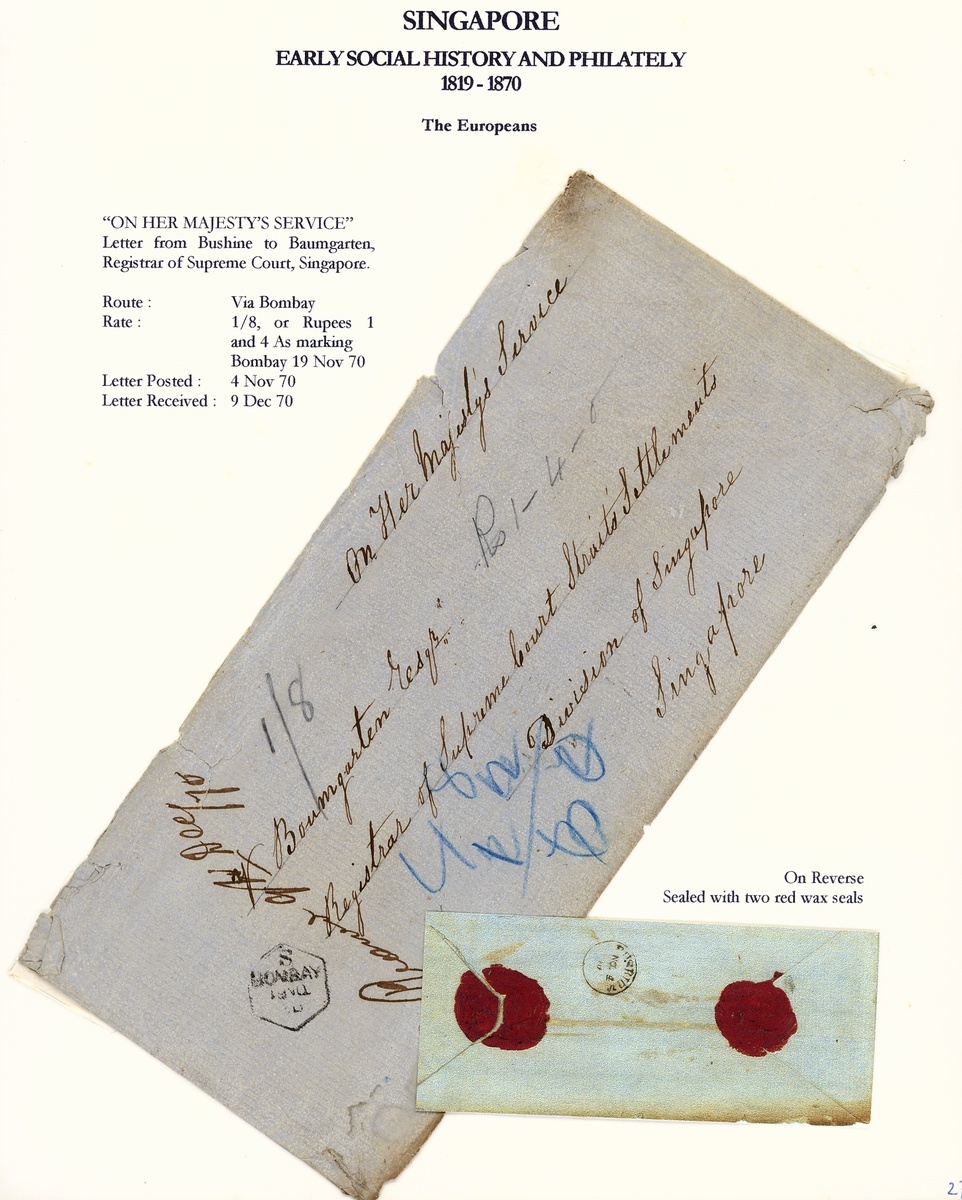 SINGAPORE
EARLY SOCIAL HISTORY AND PHILATELY
1819 - 1870
The Europeans
"ON HER MAJESTY'S SERVICE"
Letter from Bushine to Baumgarten,
Registrar of Supreme Court, Singapore.
Route : Via Bombay
Rate : 1/8, or Rupees 1
and 4 As marking
Bombay 19 Nov 70
Letter Posted : 4 Nov 70
Letter Received : 9 Dec 70
On Her Majesty's Service
Rs 1-4-0
1/8
Baumgarten Esqr.
Registrar of Supreme Court Straits Settlements
Division of Singapore
Singapore
BOMBAY
On Reverse
Sealed with two red wax seals